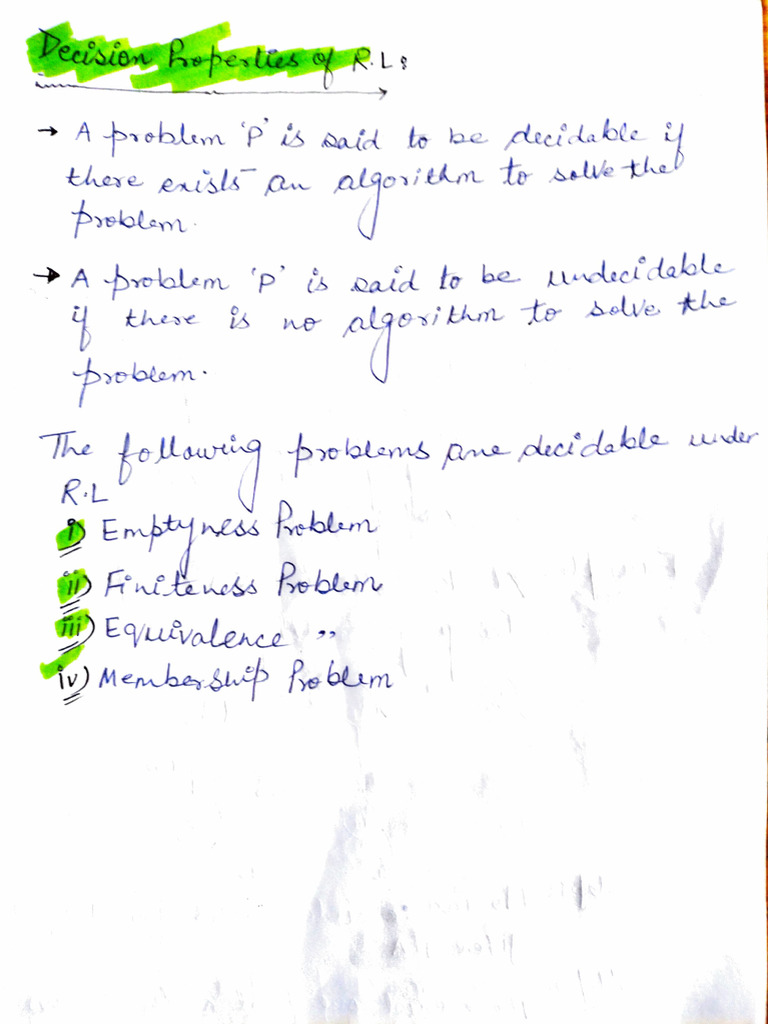 Decision Properties of R.L:
→ A problem 'P' is said to be decidable if
there exists an algorithm to solve the
problem.
→ A problem 'P' is said to be undecidable
if there is no algorithm to solve the
problem.
The following problems are decidable under
R.L
i) Emptyness Problem
ii) Finiteness Problem
iii) Equivalence ,,
iv) Membership Problem